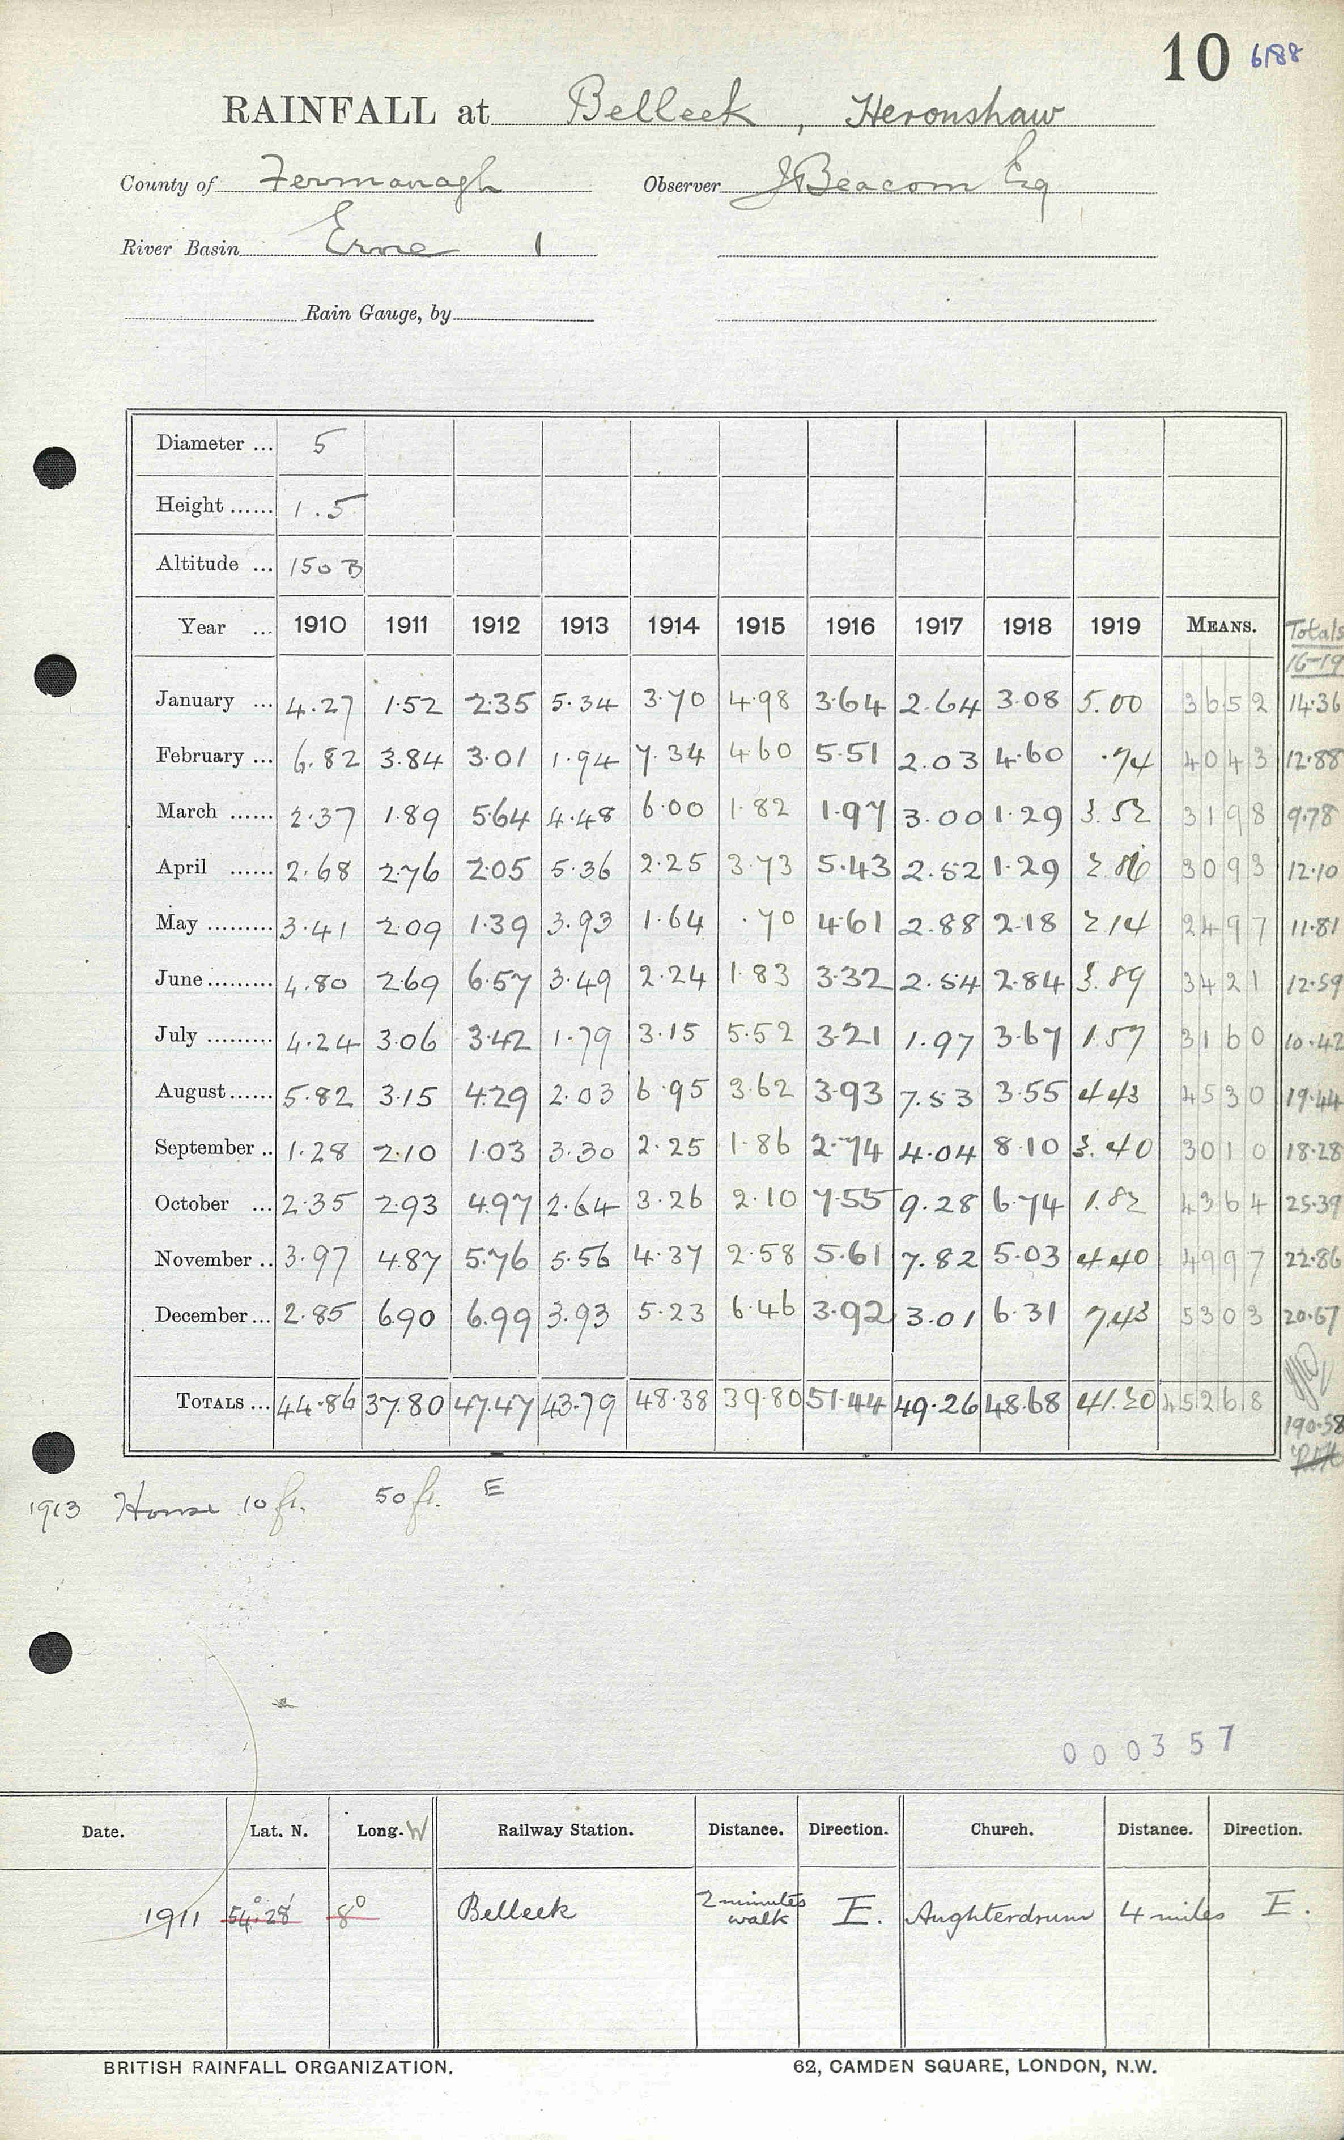 10 6188
RAINFALL at Belleek, Heronshaw
County of Fermanagh Observer J Beacom Esq
River Basin Erne 1
Rain Gauge, by
Diameter ... 5
Height ...... 1.5
Altitude ... 150 B
Year ... 1910 1911 1912 1913 1914 1915 1916 1917 1918 1919 MEANS. Totals
16-19
January ... 4.27 1.52 2.35 5.34 3.70 4.98 3.64 2.64 3.08 5.00 3652 14.36
February ... 6.82 3.84 3.01 1.94 7.34 4.60 5.51 2.03 4.60 .74 4043 12.88
March ...... 2.37 1.89 5.64 4.48 6.00 1.82 1.97 3.00 1.29 3.52 3198 9.78
April ...... 2.68 2.76 2.05 5.36 2.25 3.73 5.43 2.52 1.29 2.86 3093 12.10
May ......... 3.41 2.09 1.39 3.93 1.64 .70 4.61 2.88 2.18 2.14 2497 11.81
June ......... 4.80 2.69 6.57 3.49 2.24 1.83 3.32 2.54 2.84 3.89 3421 12.59
July ......... 4.24 3.06 3.42 1.79 3.15 5.52 3.21 1.97 3.67 1.57 3160 10.42
August ...... 5.82 3.15 4.29 2.03 6.95 3.62 3.93 7.53 3.55 4.43 4530 19.44
September .. 1.28 2.10 1.03 3.30 2.25 1.86 2.74 4.04 8.10 3.40 3010 18.28
October ... 2.35 2.93 4.97 2.64 3.26 2.10 7.55 9.28 6.74 1.82 4364 25.39
November .. 3.97 4.87 5.76 5.56 4.37 2.58 5.61 7.82 5.03 4.40 4997 22.86
December ... 2.85 6.90 6.99 3.93 5.23 6.46 3.92 3.01 6.31 7.43 5303 20.67
TOTALS ... 44.86 37.80 47.47 43.79 48.38 39.80 51.44 49.26 48.68 41.20 45268
190.58
1913 House 10 ft. 50 ft. E
000357
Date. Lat. N. Long. W Railway Station. Distance. Direction. Church. Distance. Direction.
1911 54° 28' 8° Belleek 2 minutes walk E. Aughterdrum 4 miles E.
BRITISH RAINFALL ORGANIZATION. 62, CAMDEN SQUARE, LONDON, N.W.